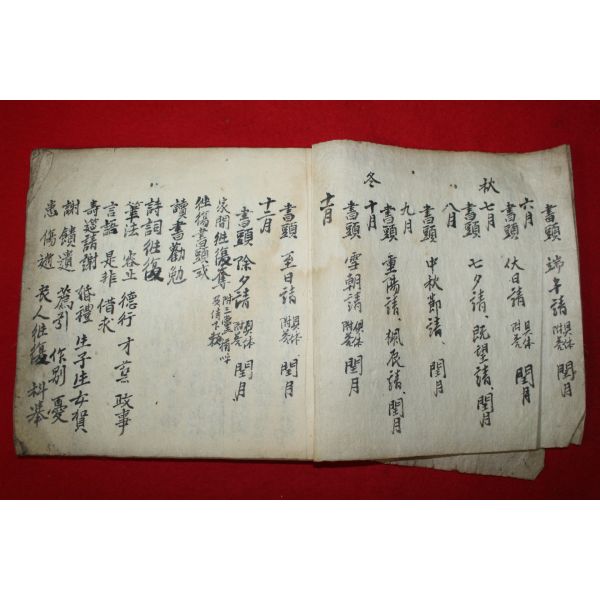 書頭 端午請 具体 附答 閏月
六月
書頭 伏日請 具体 附答 閏月
秋 七月
書頭 七夕請、既望請、閏月
八月
書頭 中秋節請、閏月
九月
書頭 重陽請、楓辰請、閏月
冬 十月
書頭 雪朝請 具体 附答 閏月
十一月
書頭 至日請 閏月
十二月
書頭 除夕請 具体 附答 閏月
家間往復 附三黨稱呼
往復書頭式
讀書勸勉
詩詞往復
筆法 容止 德行 才藝 政事
言語 是非 借求
壽筵請謝 婚禮 生子生女賀
謝饋遺 篇引 作別 憂
患 傷逝 喪人往復 科擧